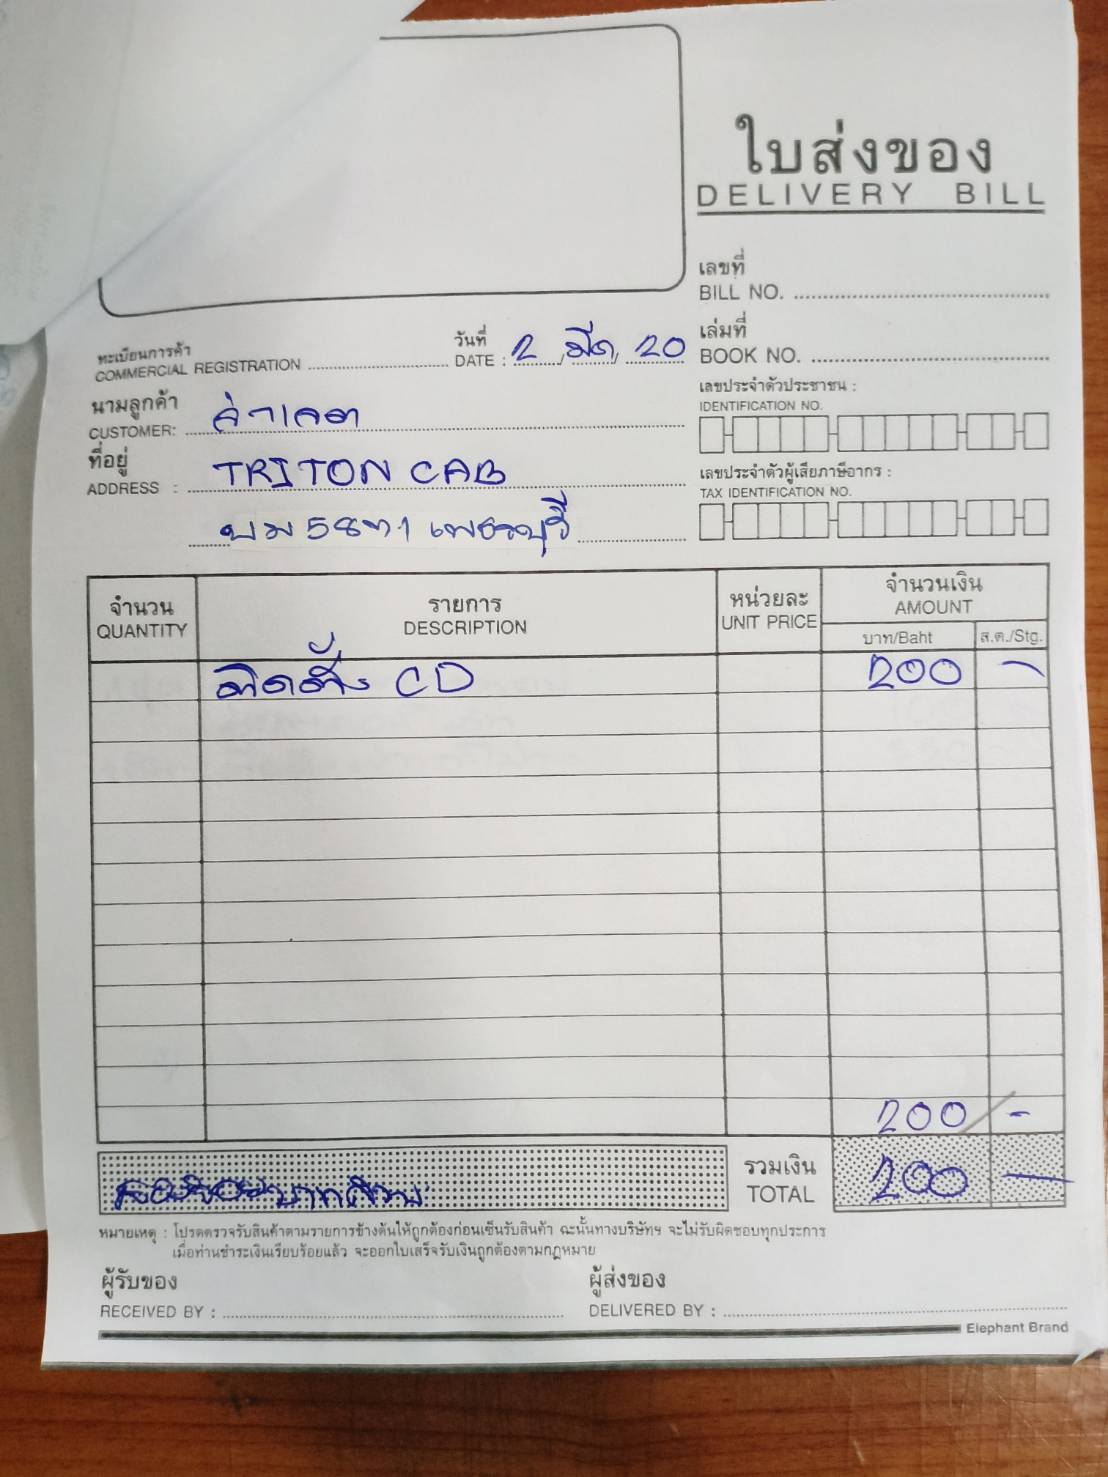 ใบส่งของ
DELIVERY BILL
เลขที่
BILL NO.
วันที่
DATE : 2 มีค 20
เล่มที่
BOOK NO.
ทะเบียนการค้า
COMMERCIAL REGISTRATION
เลขประจำตัวประชาชน :
IDENTIFICATION NO.
นามลูกค้า
CUSTOMER:
ที่อยู่
ADDRESS : TRITON CAB
เลขประจำตัวผู้เสียภาษีอากร :
TAX IDENTIFICATION NO.
บม 5871 เพชรบุรี
จำนวน
QUANTITY
รายการ
DESCRIPTION
หน่วยละ
UNIT PRICE
จำนวนเงิน
AMOUNT
บาท/Baht ส.ต./Stg.
ติดตั้ง CD 200 -
200 / -
สองร้อยบาทถ้วน
รวมเงิน
TOTAL 200 -
หมายเหตุ : โปรดตรวจรับสินค้าตามรายการข้างต้นให้ถูกต้องก่อนเซ็นรับสินค้า ฉะนั้นทางบริษัทฯ จะไม่รับผิดชอบทุกประการ
เมื่อท่านชำระเงินเรียบร้อยแล้ว จะออกใบเสร็จรับเงินถูกต้องตามกฎหมาย
ผู้รับของ
RECEIVED BY :
ผู้ส่งของ
DELIVERED BY :
Elephant Brand